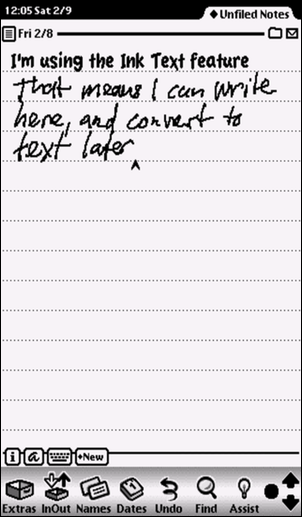 12:05 Sat 2/9
◆Unfiled Notes
Fri 2/8
I'm using the Ink Text feature
That means I can write
here, and convert to
text later
i a ◆New
Extras InOut Names Dates Undo Find Assist